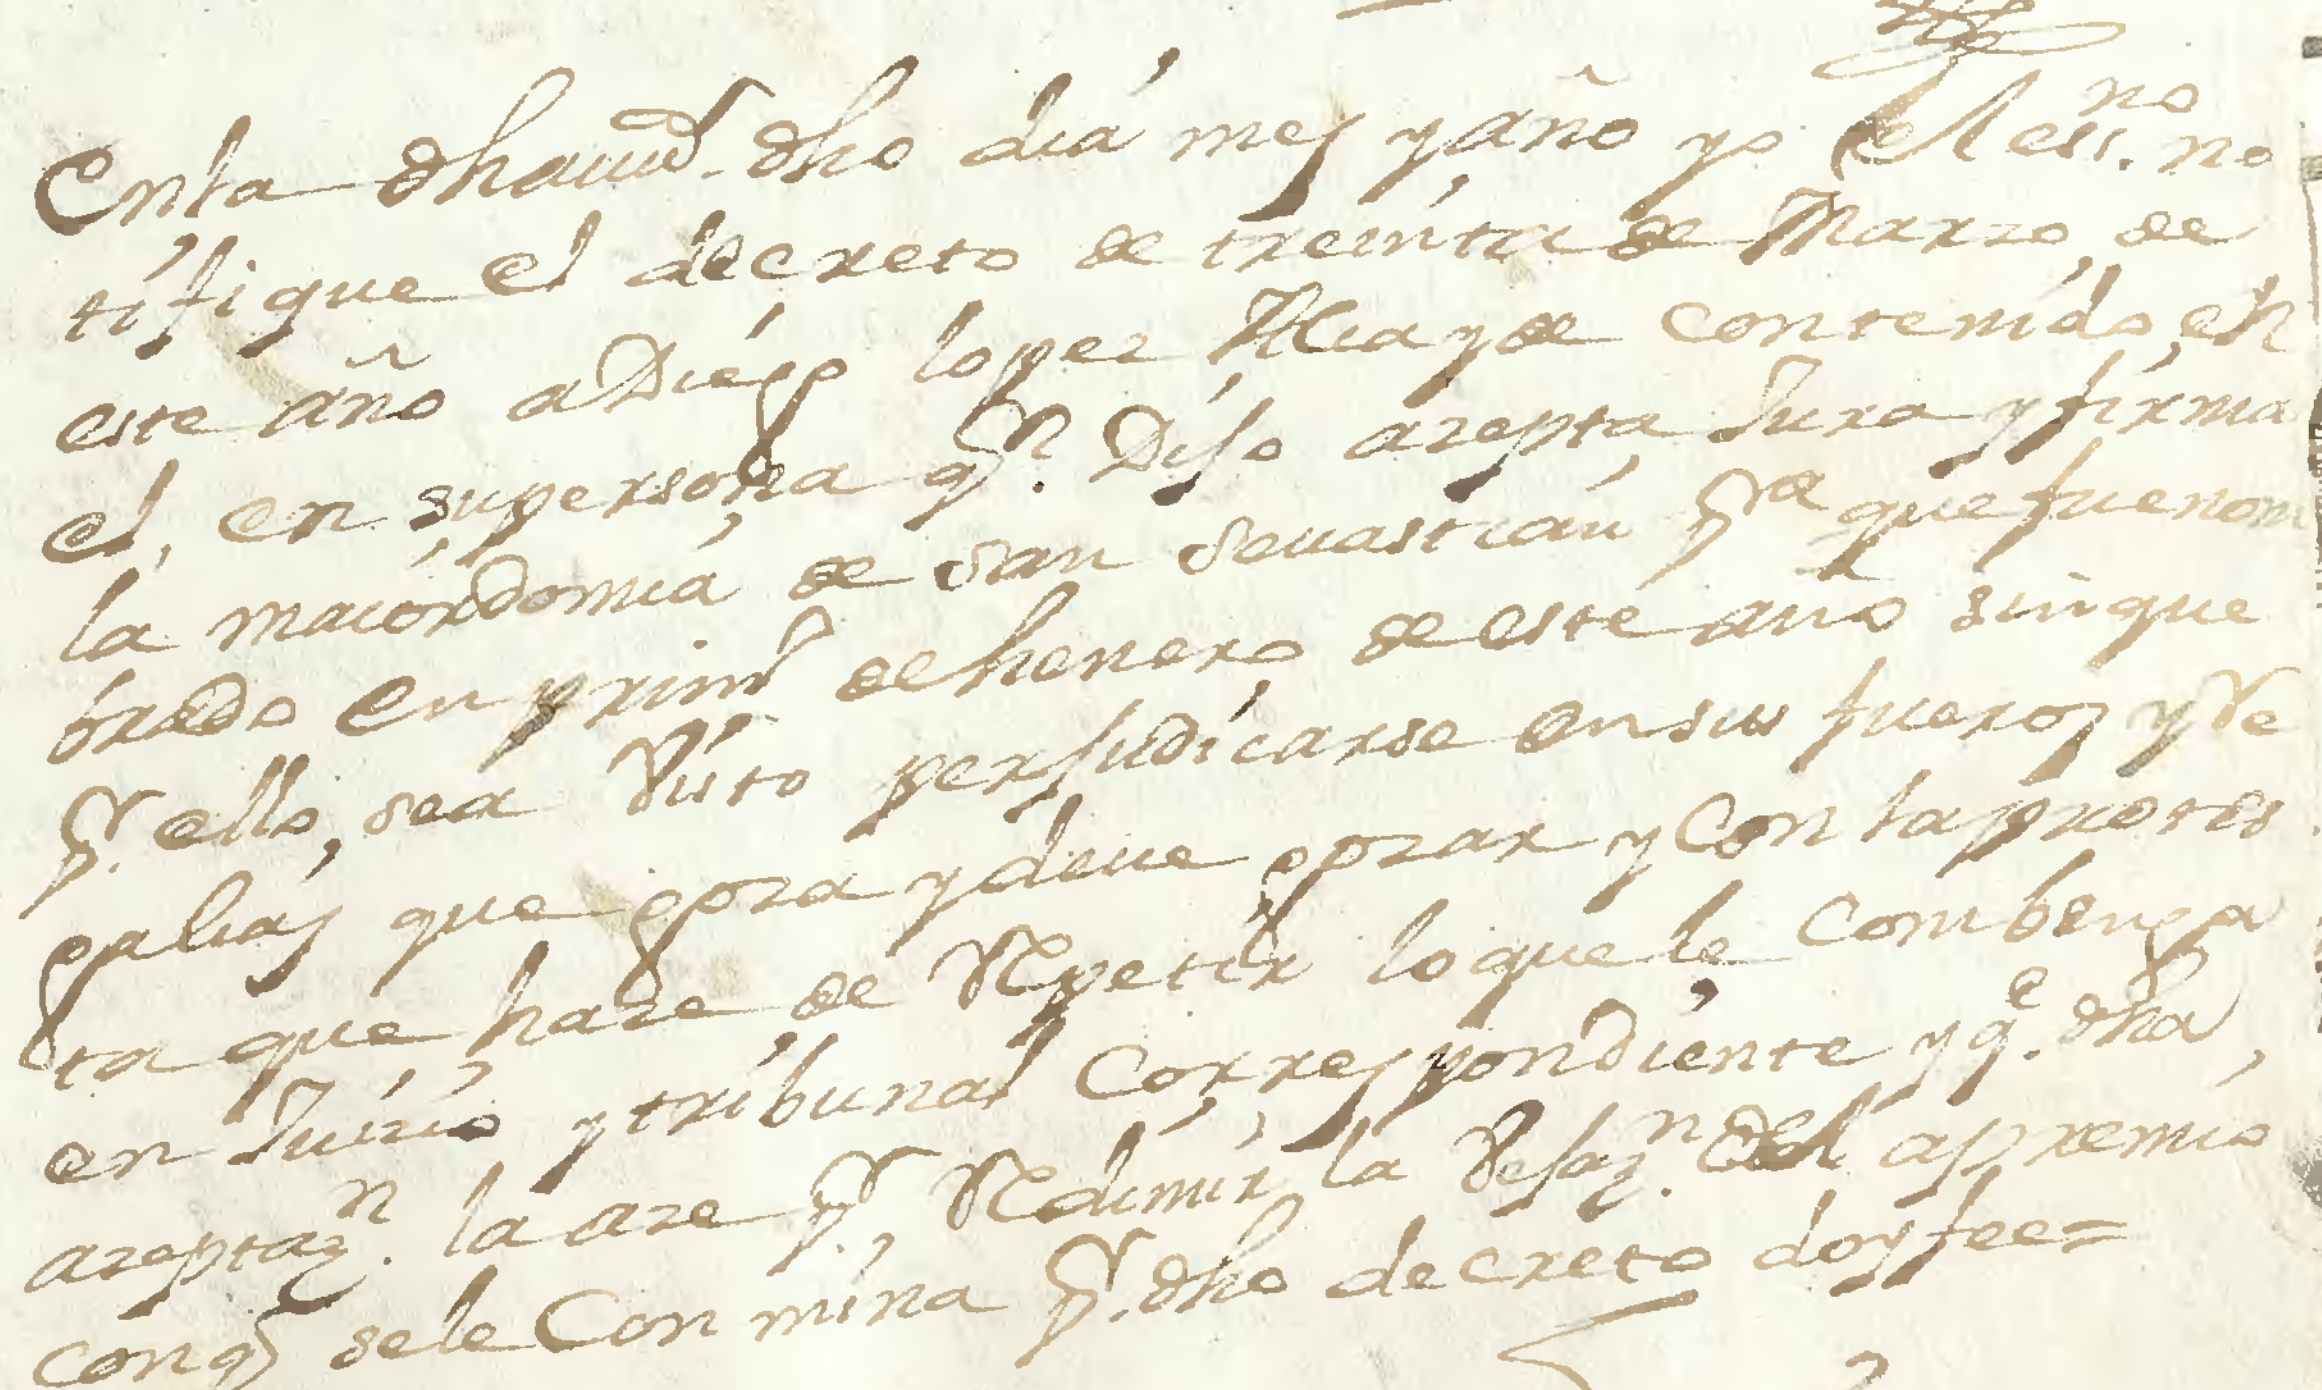 En la dha ciud. dho dia mes y año yo el ess.no no
tifique el decreto de treinta de Marzo de
este año a Diego lopez Alcayde contenido en
el, en su persona qn. Dijo azepta Jura y firma
la maiordomia de san Seuastian pa que fue nom
brado en primo de henero de este año sin que
pr. ello, sea visto perjudicarse en sus fueros y Re
galias que goza y deue gozar y Con la protes
ta que haze de Repetir lo que le Combenga
en Juizio y tribunal Correspondiente y qe. dha
azeptazn. la aze pr. Redimir la Vejazn. del apremio
con q se le Conmina pr. dho decreto doy fee=